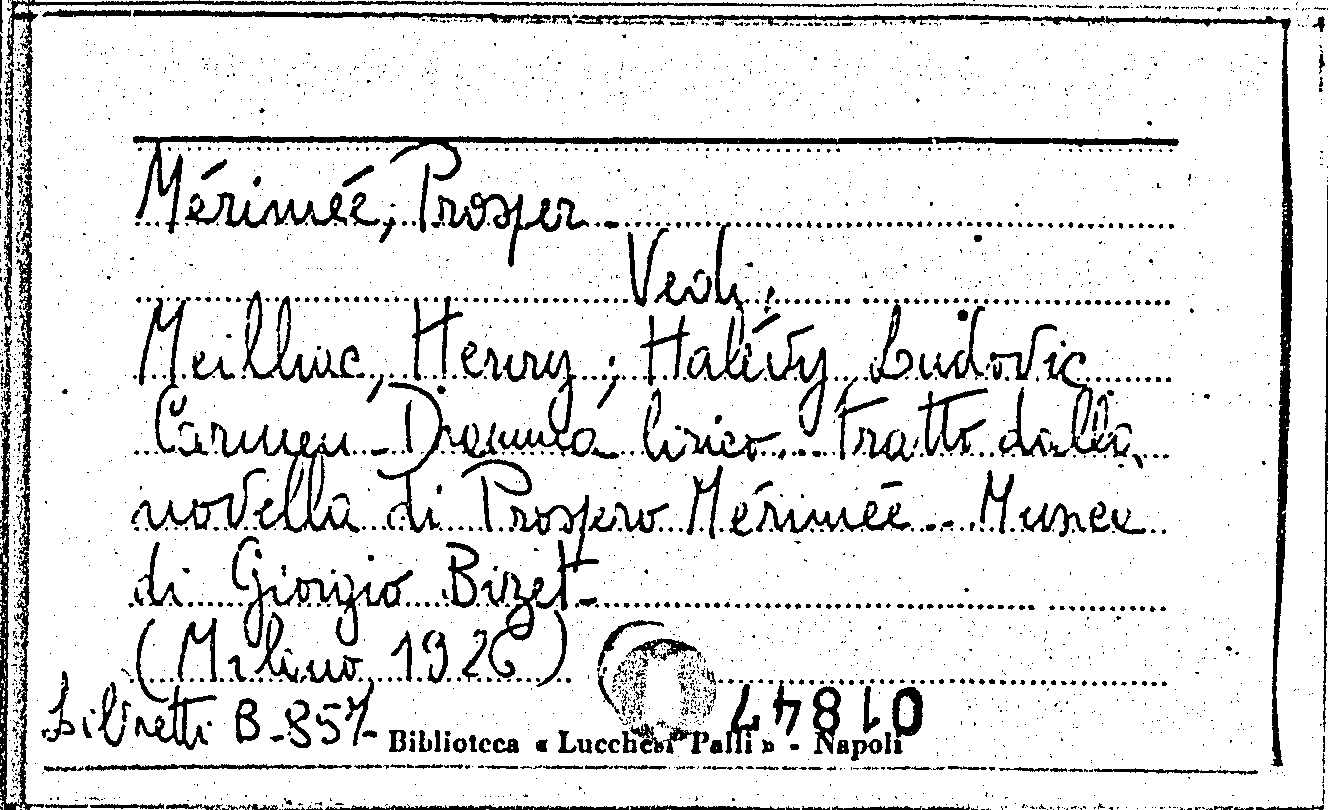 Mérimée, Prosper -
Vedi:
Meilhac, Henry; Halévy, Ludovic
Carmen - Dramma lirico... Tratto dalla
novella di Prospero Mérimée... Musica
di Giorgio Bizet -
(Milano 1926)
Libretti B - 857
Biblioteca « Lucchesi Palli » - Napoli
01847